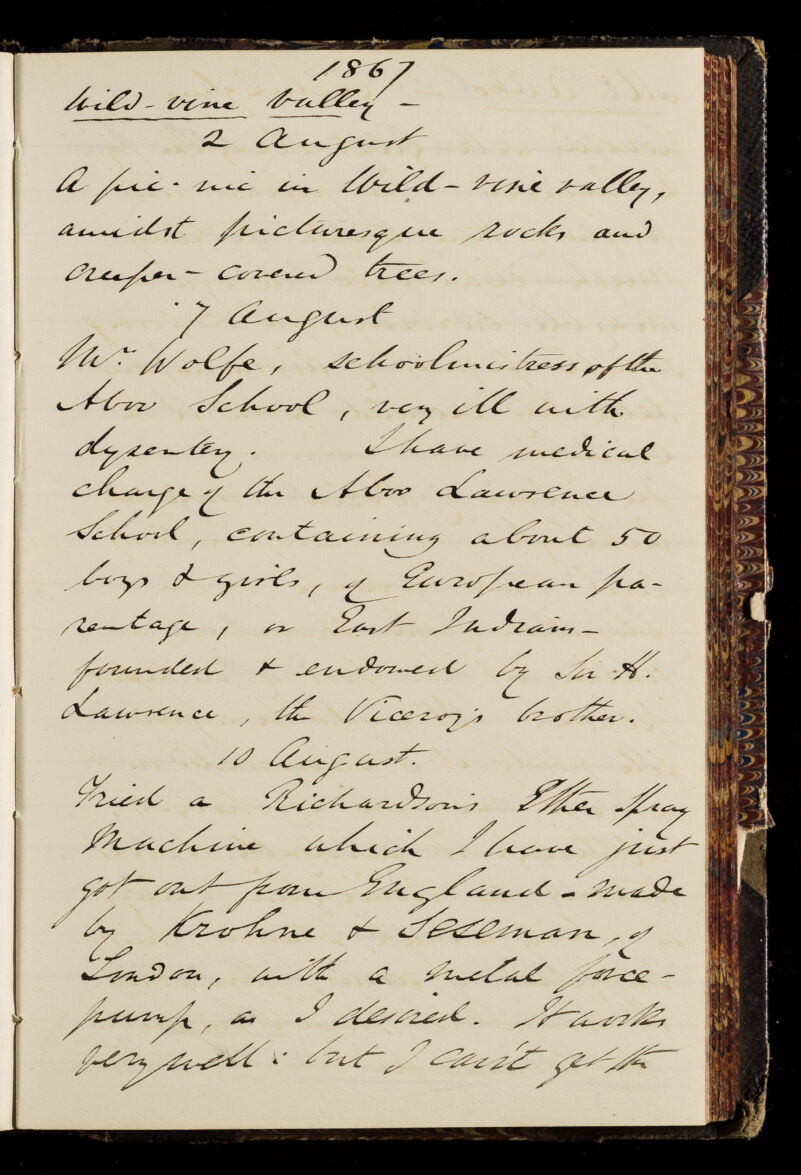 1867
Wild-vine valley -
2 August
A pic-nic in Wild-vine valley,
amidst picturesque rocks and
creeper-covered trees.
7 August
Mrs Wolfe, schoolmistress of the
Aboo School, very ill with
dysentery. I have medical
charge of the Aboo Lawrence
School, containing about 50
boys & girls, of European pa-
rentage, or East Indians -
founded & endowed by Sir H.
Lawrence, the Viceroy's brother.
10 August.
Tried a Richardson's Ether Spray
Machine which I have just
got out from England - made
by Krohne & Seseman, of
London, with a metal force-
pump, as I desired. It works
very well: but I can't get the